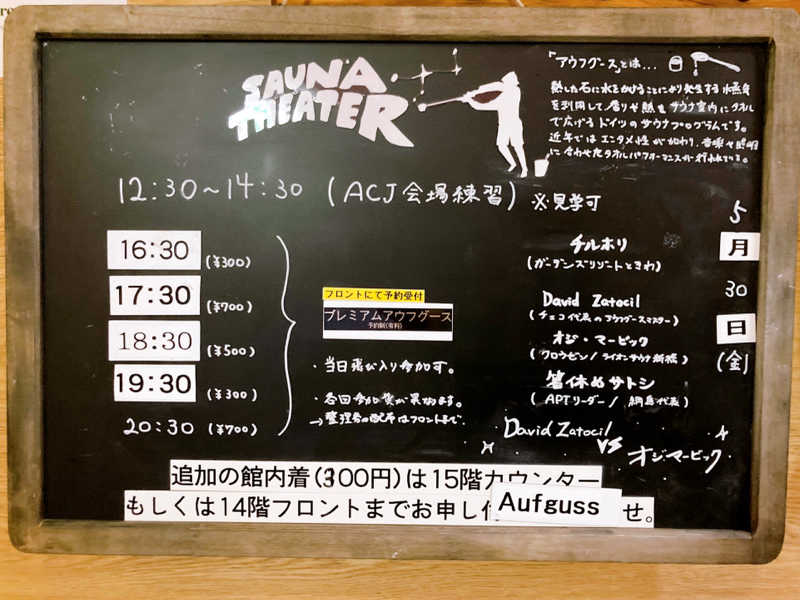 SAUNA
THEATER
「アウフグース」とは...
熱した石に水をかけることにより発生する蒸気
を利用して、香りや熱をサウナ室内にタオル
で広げるドイツのサウナプログラムです。
近年ではエンタメ性が加わり、音楽や照明
に合わせたタオルパフォーマンスが行われている。
12:30~14:30 (ACJ会場練習) ※見学可
5
月
30
日
(金)
16:30 (¥300)
チルホリ
(ガーデンズリゾートときわ)
17:30 (¥700)
David Zatocil
(チェコ代表のアウフグースマスター)
18:30 (¥500)
オジ・マービック
19:30 (¥300)
箸休めサトシ
(APTリーダー/綱島代表)
20:30 (¥700)
David Zatocil
VS
オジマービック
フロントにて予約受付
プレミアムアウフグース
予約制(有料)
・当日飛び入り参加可。
・各回参加費が異なります。
→整理券の配布はフロントまで。
追加の館内着(300円)は15階カウンター
もしくは14階フロントまでお申し付
Aufguss
せ。